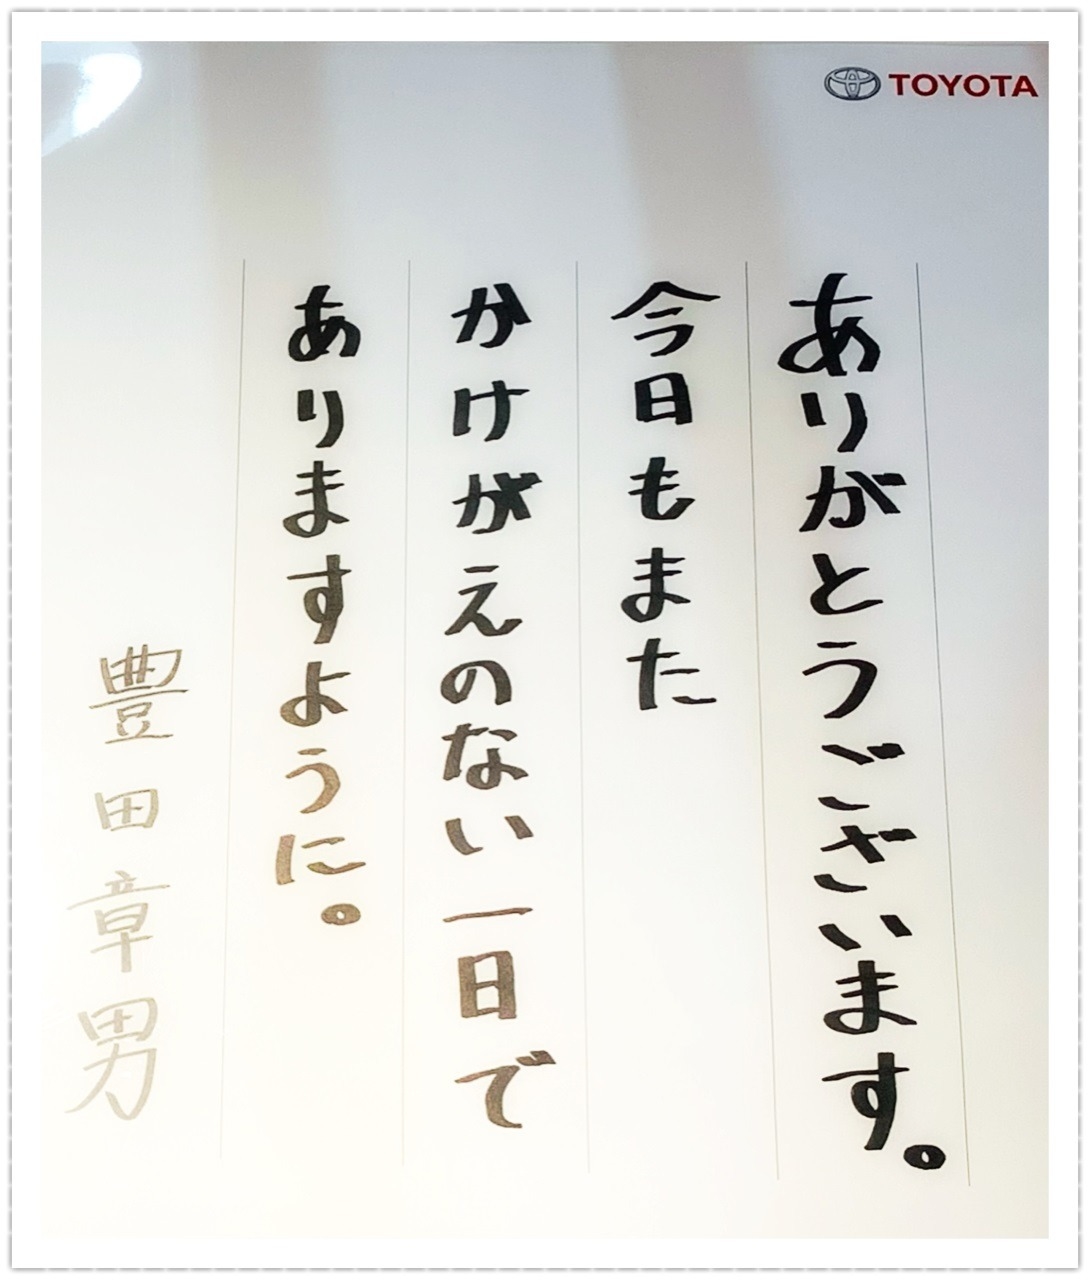 TOYOTA
ありがとうございます。
今日もまた
かけがえのない一日で
ありますように。
豊田章男